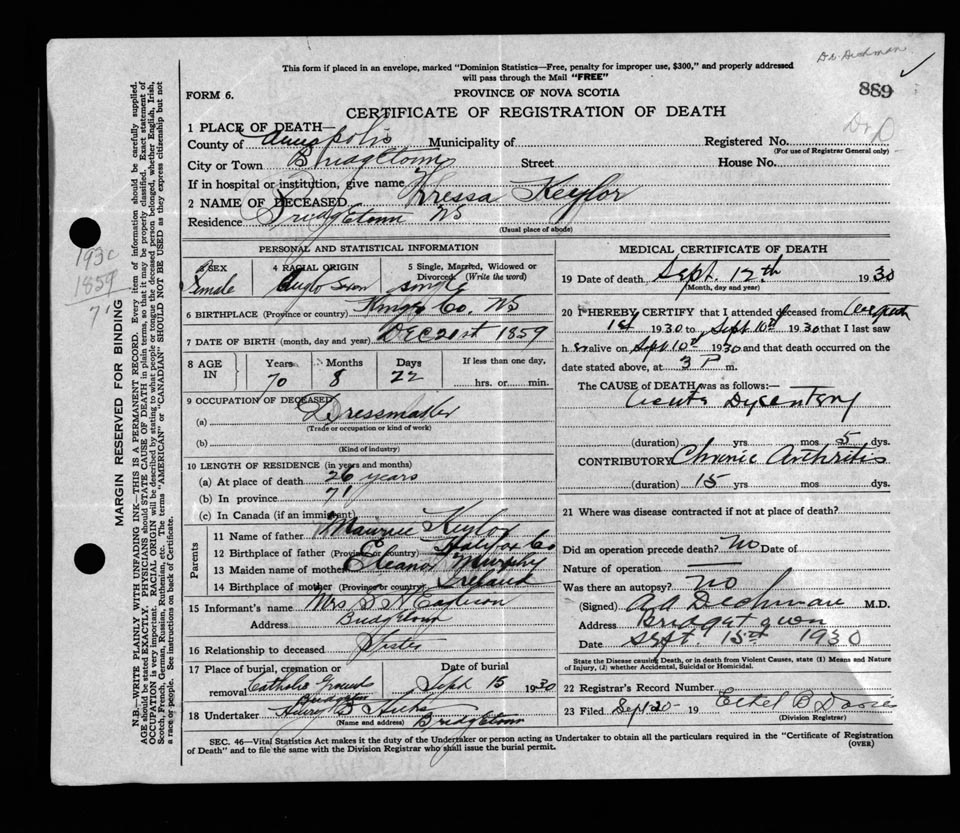 Dr. Dechman
This form if placed in an envelope, marked "Dominion Statistics—Free, penalty for improper use, $300," and properly addressed
will pass through the Mail "FREE"
889
FORM 6.
PROVINCE OF NOVA SCOTIA
CERTIFICATE OF REGISTRATION OF DEATH
Dr D
1 PLACE OF DEATH—
County of Annapolis Municipality of Registered No.
(For use of Registrar General only)
City or Town Bridgetown Street House No.
If in hospital or institution, give name
2 NAME OF DECEASED Thressa Keylor
Residence Bridgetown NS
(Usual place of abode)
PERSONAL AND STATISTICAL INFORMATION
3 SEX 4 RACIAL ORIGIN 5 Single, Married, Widowed or Divorced (Write the word)
Female Anglo Saxon Single
6 BIRTHPLACE (Province or country) Kings Co. NS
7 DATE OF BIRTH (month, day and year) DEC 21st 1859
8 AGE IN Years Months Days If less than one day,
70 8 22 hrs. or min.
9 OCCUPATION OF DECEASED
(a) Dressmaker
(Trade or occupation or kind of work)
(b)
(Kind of industry)
10 LENGTH OF RESIDENCE (in years and months)
(a) At place of death 26 years
(b) In province 71
(c) In Canada (if an immigrant)
Parents
11 Name of father Maurice Keylor
12 Birthplace of father (Province or country) Halifax Co
13 Maiden name of mother Eleanor Murphy
14 Birthplace of mother (Province or country) Ireland
15 Informant's name Mrs
Address Bridgetown
16 Relationship to deceased Sister
17 Place of burial, cremation or removal Date of burial
Catholic Grounds Bridgetown Sept 15 1930
18 Undertaker Hicks
(Name and address) Bridgetown
MEDICAL CERTIFICATE OF DEATH
19 Date of death Sept. 12th 1930
(Month, day and year)
20 I HEREBY CERTIFY that I attended deceased from August
1st 1930 to Sept 10th 1930 that I last saw
her alive on Sept 10th 1930 and that death occurred on the
date stated above, at 3 P m.
The CAUSE OF DEATH was as follows:—
Acute Dysentery
(duration) yrs mos 5 dys.
CONTRIBUTORY Chronic Arthritis
(duration) 15 yrs mos dys.
21 Where was disease contracted if not at place of death?
Did an operation precede death? No Date of
Nature of operation —
Was there an autopsy? No
(Signed) A A Dechman M.D.
Address Bridgetown
Date Sept 15th 1930
State the Disease causing Death, or in death from Violent Causes, state (1) Means and Nature
of Injury, (2) whether Accidental, Suicidal or Homicidal.
22 Registrar's Record Number
23 Filed Sept 20 19 Ethel B Davis
(Division Registrar)
SEC. 46—Vital Statistics Act makes it the duty of the Undertaker or person acting as Undertaker to obtain all the particulars required in the "Certificate of Registration
of Death" and to file the same with the Division Registrar who shall issue the burial permit.
(OVER)
1930
1859
71
MARGIN RESERVED FOR BINDING
N.B.—WRITE PLAINLY WITH UNFADING INK—THIS IS A PERMANENT RECORD. Every item of information should be carefully supplied.
AGE should be stated EXACTLY. PHYSICIANS should STATE CAUSE OF DEATH in plain terms, so that it may be properly classified. Exact statement of
OCCUPATION is very important. RACIAL ORIGIN will be described by stating to what people or tongue the deceased person belonged, whether English, Irish,
Scotch, French, German, Russian, Ruthenian, etc. The terms "AMERICAN" or "CANADIAN" SHOULD NOT BE USED as they express citizenship but not
a race or people. See instructions on back of Certificate.